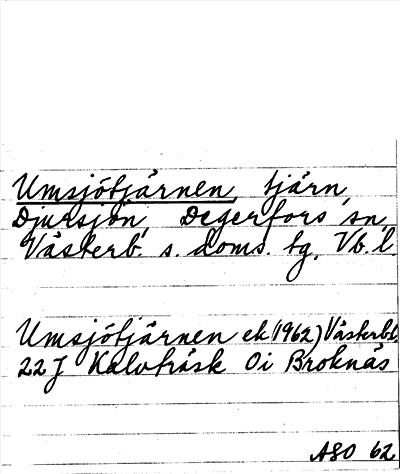 Umsjötjärnen, tjärn,
Djursjön, Degerfors sn,
Västerb. s. doms. tg, Vb. l.
Umsjötjärnen ek (1962) Västerb.l.
22 J Kalvträsk 0i Broknäs
ASO 62